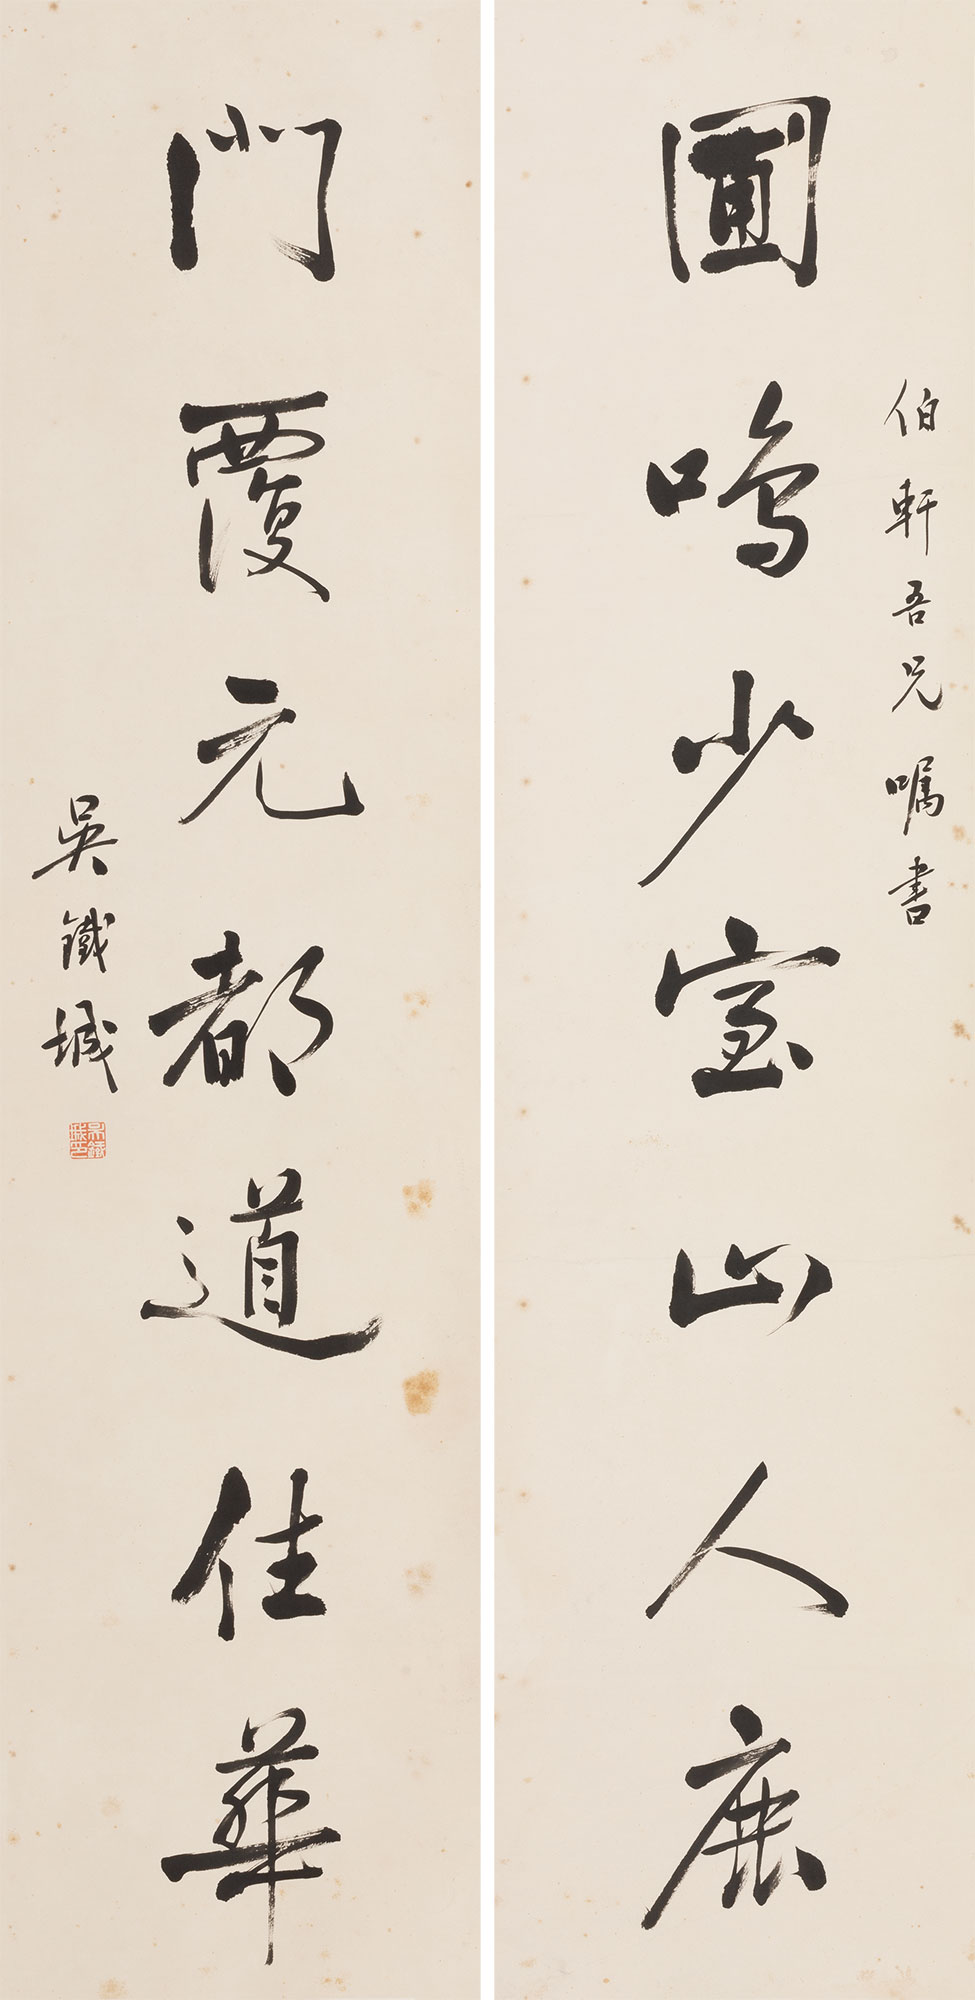 伯軒吾兄嘱書
圃鳴少室山人鹿
門覆元都道佳華
吳鐵城
吳鐵城印